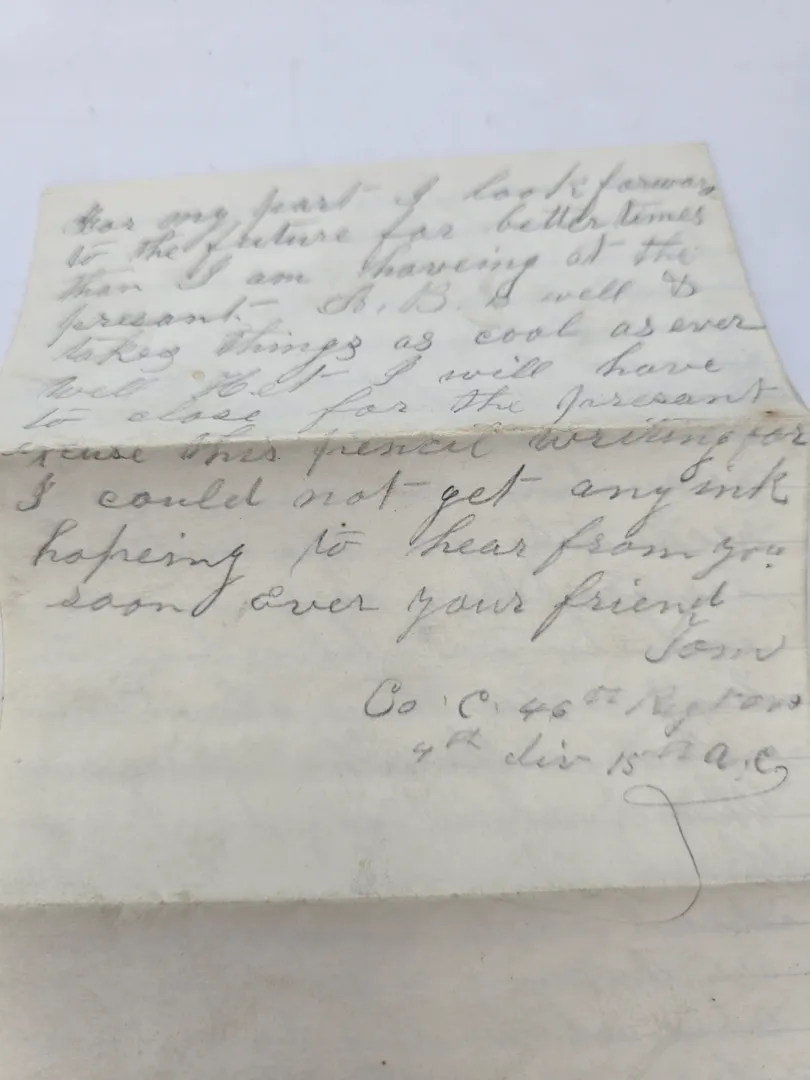 For my part I look forward
to the future for better times
than I am haveing at the
presant A. B. is well &
takes things as cool as ever
well Het I will have
to close for the presant
excuse this pencil writing for
I could not get any ink
hopeing to hear from you
soon Ever your friend
Tom
Co. C. 46th
4th div 15th A.C.